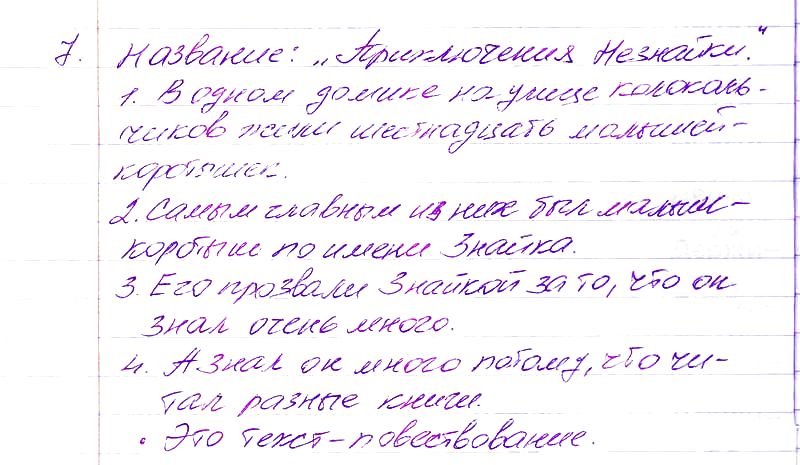 7. Название: „Приключения Незнайки."
1. В одном домике на улице колоколь-
чиков жили шестнадцать малышей-
коротышек.
2. Самым главным из них был малыш-
коротыш по имени Знайка.
3. Его прозвали Знайкой за то, что он
знал очень много.
4. А знал он много потому, что чи-
тал разные книги.
• Это текст-повествование.